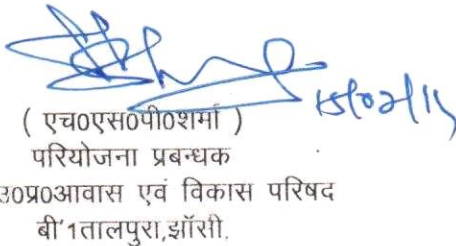 15/02/11
( एच0एस0पी0शर्मा )
परियोजना प्रबन्धक
उ0प्र0आवास एवं विकास परिषद
बी'1तालपुरा,झॉसी.